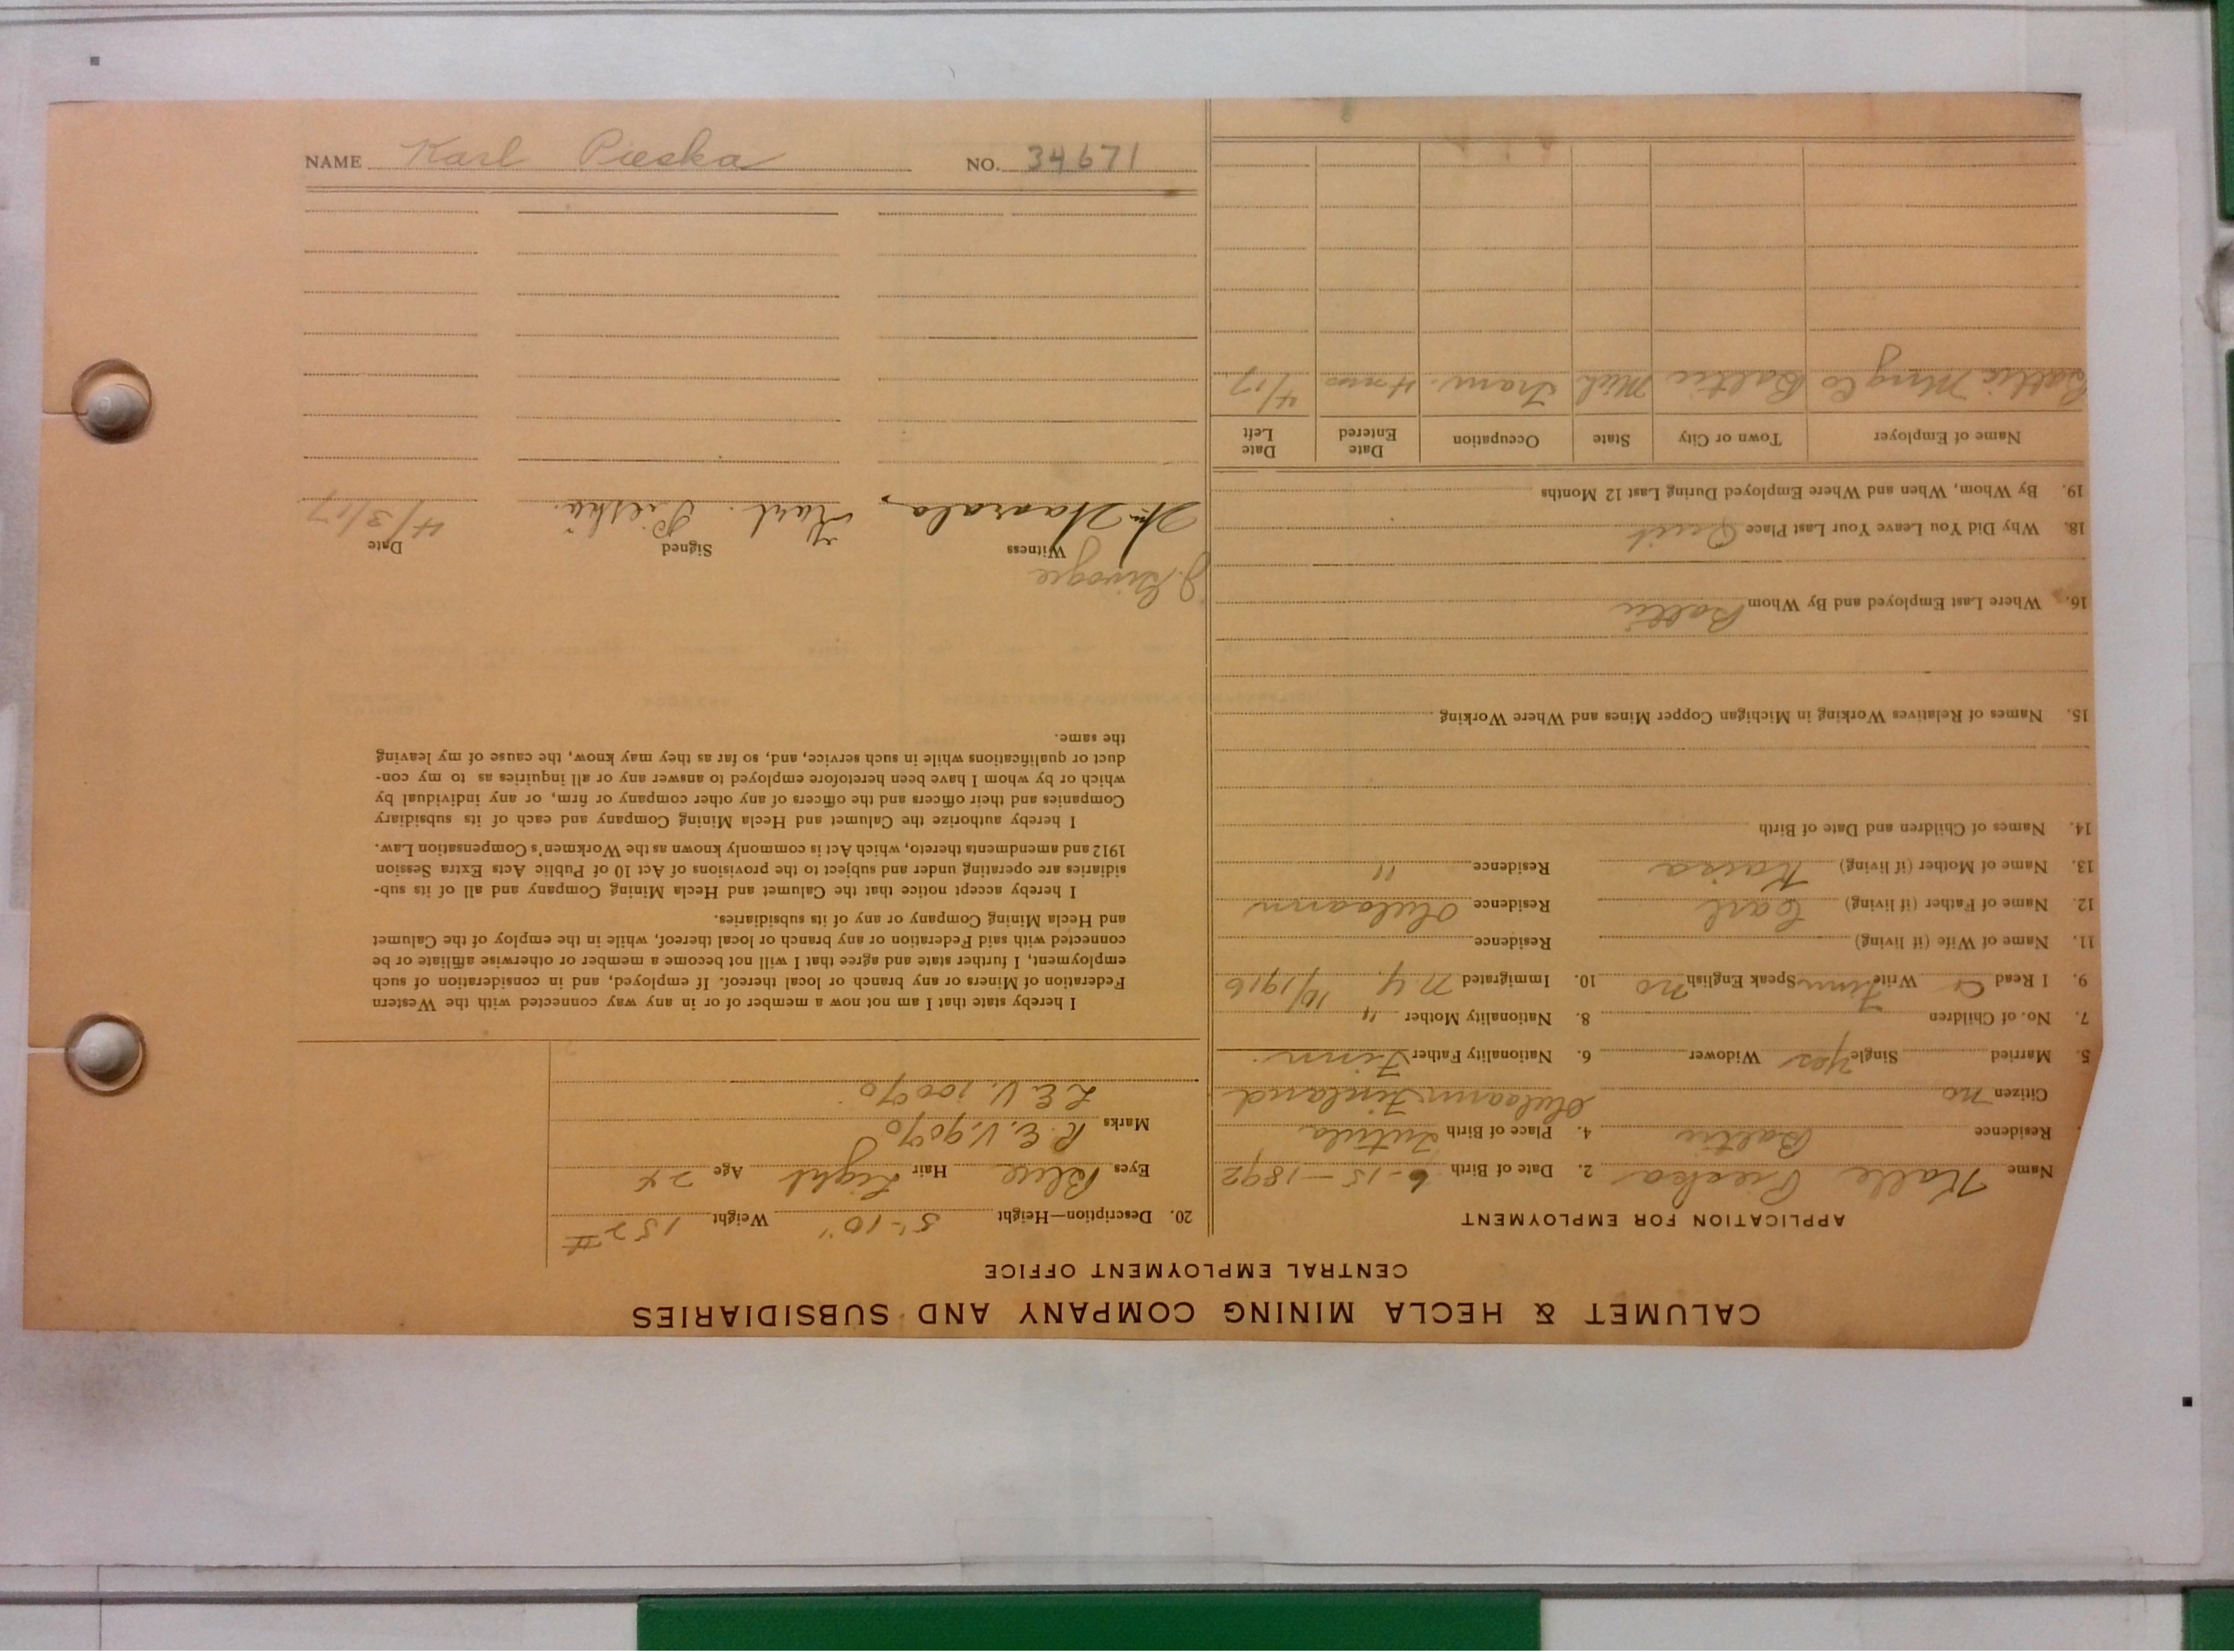 NAME Karl Pieska NO. 34671
CALUMET & HECLA MINING COMPANY AND SUBSIDIARIES
CENTRAL EMPLOYMENT OFFICE
APPLICATION FOR EMPLOYMENT
Name Kalle Pieska 2. Date of Birth 6-15-1892
Residence Baltic 4. Place of Birth
Citizen no Oulaann Finland
5. Married Single Yes Widower 6. Nationality Father Finn
7. No. of Children 8. Nationality Mother "
9. I Read & Write Finn Speak English no 10. Immigrated N.Y. 10/1916
11. Name of Wife (if living) Residence
12. Name of Father (if living) Carl Residence Oulaann
13. Name of Mother (if living) Kaisa Residence "
14. Names of Children and Date of Birth
15. Names of Relatives Working in Michigan Copper Mines and Where Working
16. Where Last Employed and By Whom Baltic
18. Why Did You Leave Your Last Place Quit
19. By Whom, When and Where Employed During Last 12 Months
Name of Employer Town or City State Occupation Date Entered Date Left
Baltic Mng Co Baltic Mich Tram. 4 mos 4/17
20. Description—Height 5'-10" Weight 152#
Eyes Blue Hair Light Age 24
Marks R.E.V. 90%
L.E.V. 100%
I hereby state that I am not now a member of or in any way connected with the Western
Federation of Miners or any branch or local thereof. If employed, and in consideration of such
employment, I further state and agree that I will not become a member or otherwise affiliate or be
connected with said Federation or any branch or local thereof, while in the employ of the Calumet
and Hecla Mining Company or any of its subsidiaries.
I hereby accept notice that the Calumet and Hecla Mining Company and all of its sub-
sidiaries are operating under and subject to the provisions of Act 10 of Public Acts Extra Session
1912 and amendments thereto, which Act is commonly known as the Workmen's Compensation Law.
I hereby authorize the Calumet and Hecla Mining Company and each of its subsidiary
Companies and their officers and the officers of any other company or firm, or any individual by
which or by whom I have been heretofore employed to answer any or all inquiries as to my con-
duct or qualifications while in such service, and, so far as they may know, the cause of my leaving
the same.
Witness Signed Date
Wm Haarala, Karl. Pieska. 4/3/17